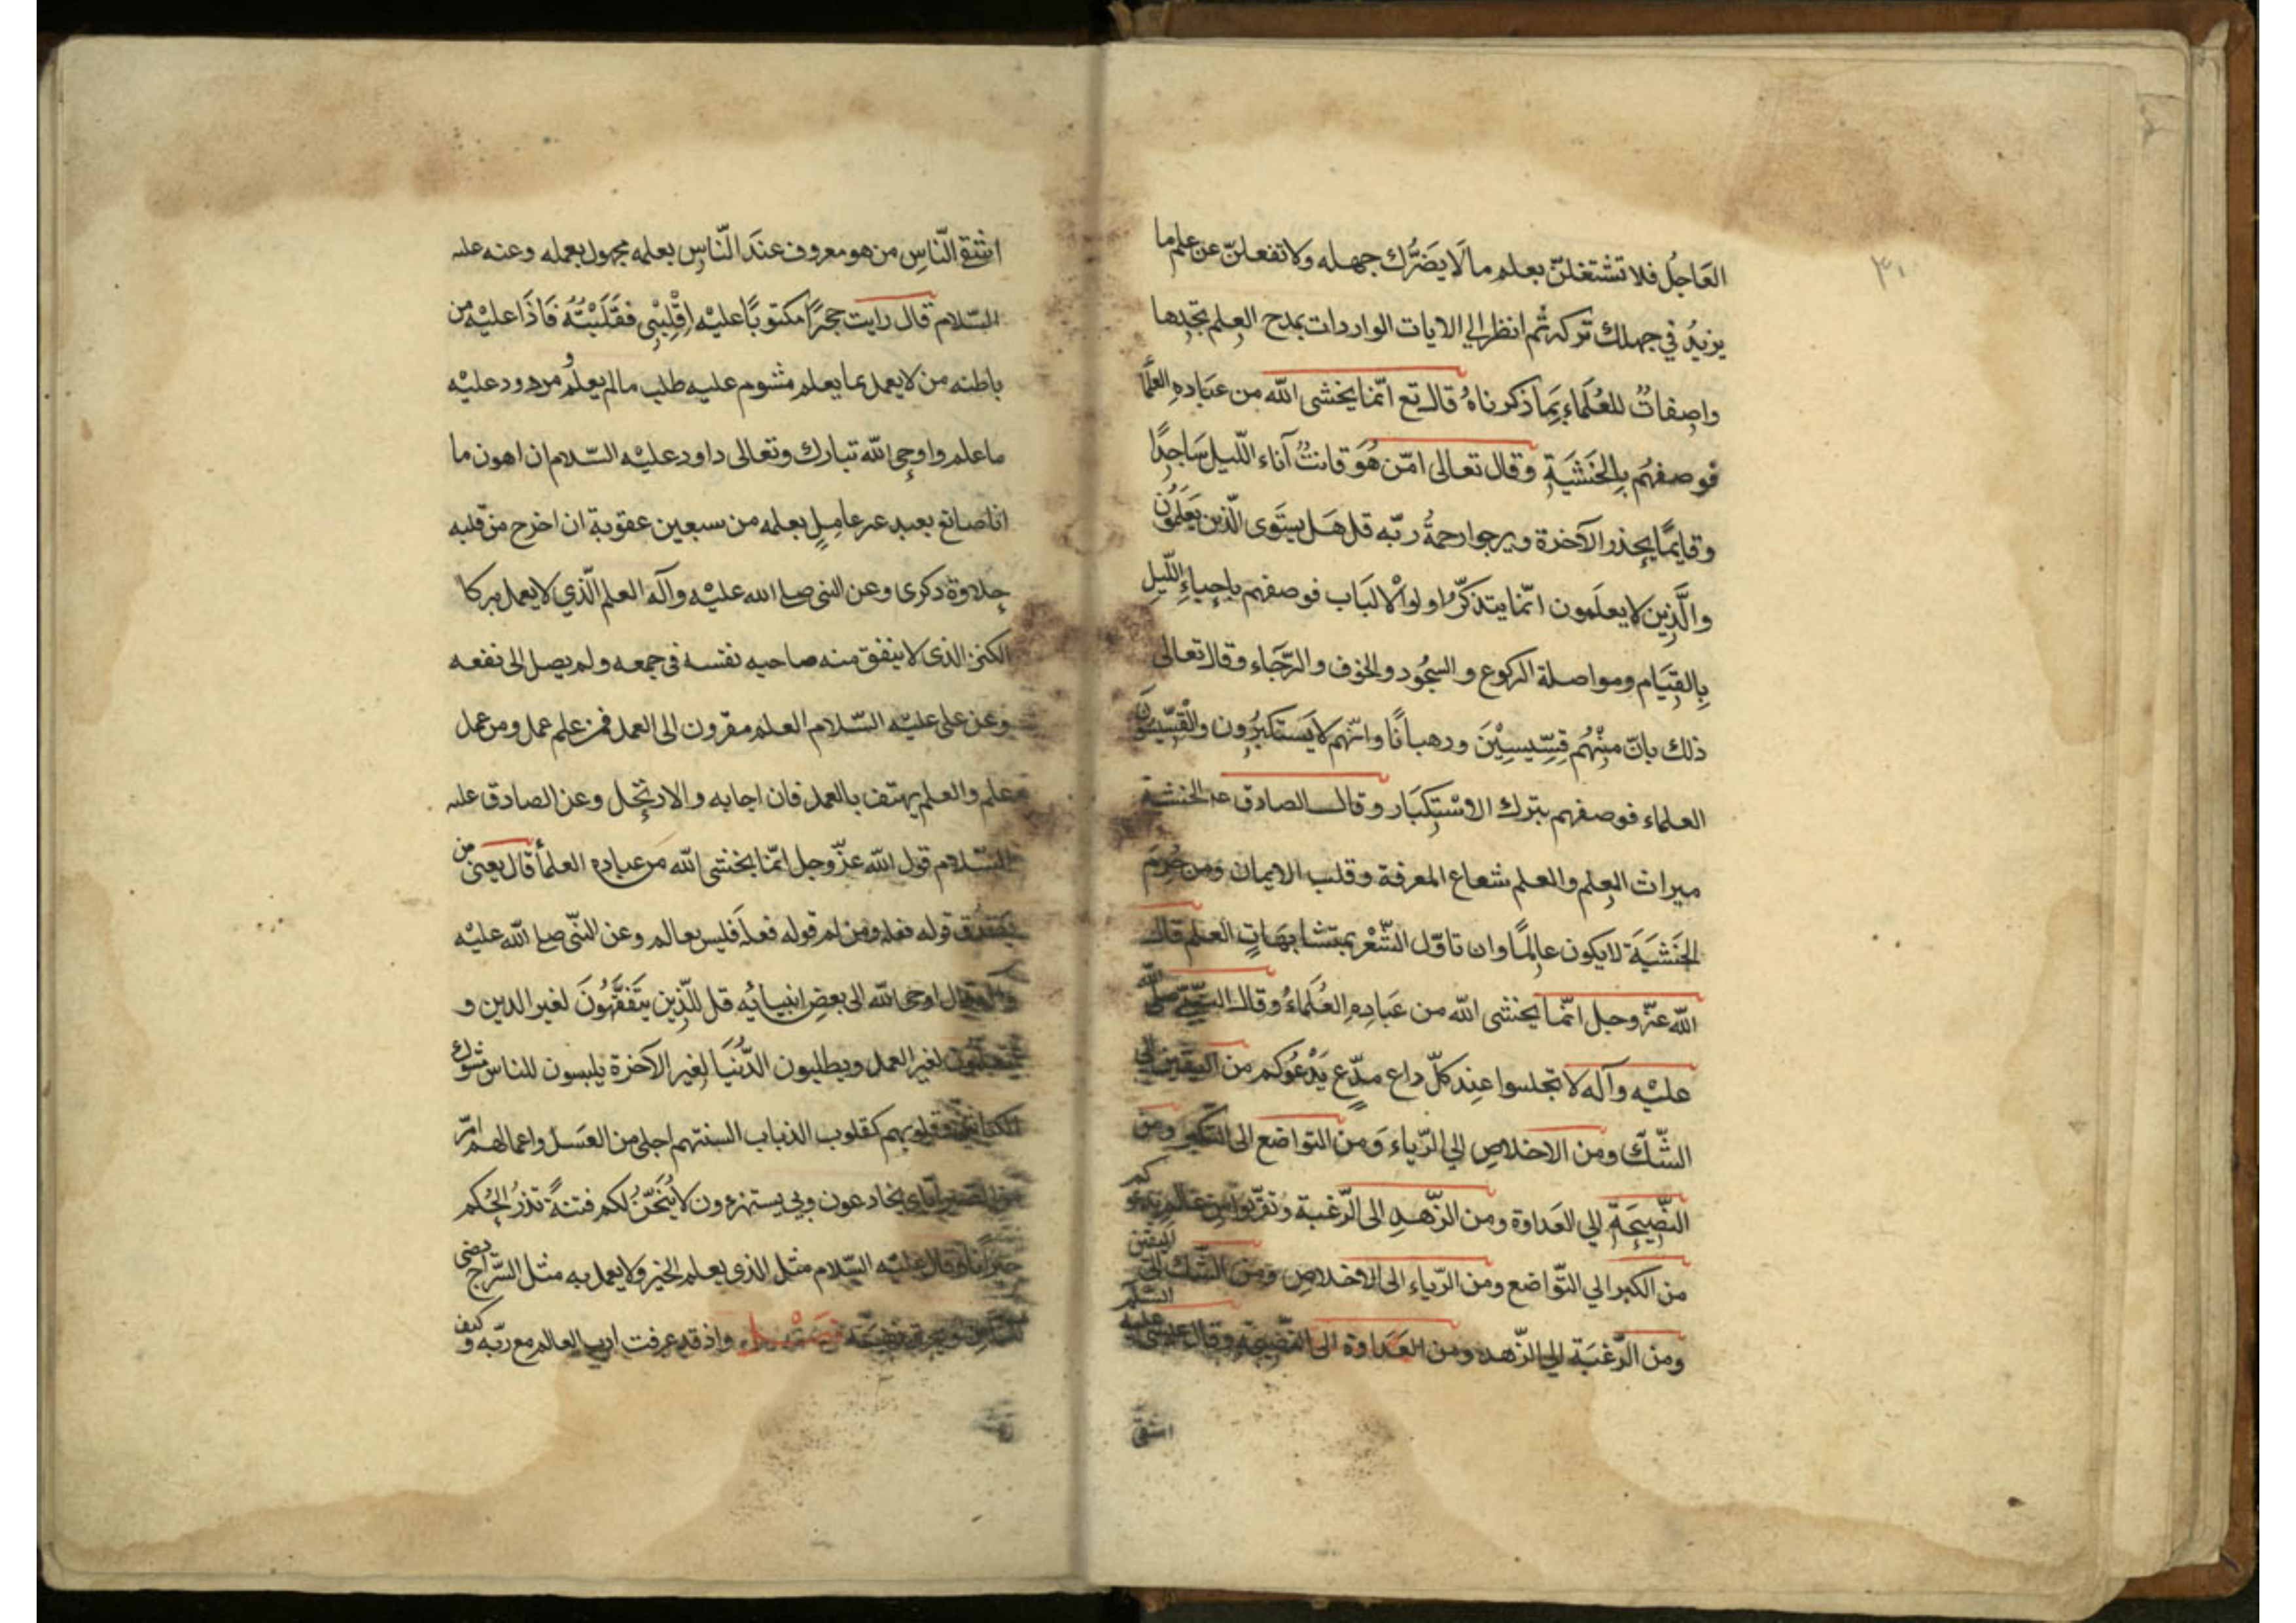 العَاجِلُ فلا تشتغلنّ بعلم ما لَا يَضرُّك جهله ولا تفعلنّ عن علم ما
يزيدُ في جهلك تركه ثم انظر الي الايات الواردات بمدح العِلم تجدها
واصِفاتٌ للعُلَماءِ بِمَا ذكرناهُ قال تع انّما يخشى الله من عبَاده العلَمَا
فوصفهُم بِالخَشيَةِ وقال تعالى امّن هُوَ قانتٌ آناء اللّيل سَاجِدًا
وقايمًا يحذر الآخرة ويرجوا رحمةُ ربّه قل هَل يستَوى الّذين يَعلَمُونَ
والَّذِين لا يعلَمون انّما يتذكّر اولوا الالبَاب فوصفهم باِحياءِ اللّيلِ
بِالقِيَام ومواصلة الركوع والسجُود والخوف والرّجَاء وقال تعالى
ذلك بانّ مِنْهُم قِسِّيسِيْنَ ورهبانًا وانّهم لا يَستَكبِرُون والقِسِّيسُونَ
العلماء فوصفهم بترك الاسْتِكبَار وقال الصادق عه الخشية
ميراث العِلم والعلم شعاع المعرفة وقلب الايمان ومن حُرِمَ
الخَشيَةَ لا يكون عالِمًا وان تاوّل الشّعْر بمتشابهَاتِ العلم قال
الله عزّ وجل انّما يخشى الله من عبَادِهِ العُلَماءُ وقال النّبىّ صلى الله
عليْه وآله لا تجلسوا عِند كلّ داع مدّعٍ يَدْعُوكم من اليقين الى
الشّكّ ومن الاخلاصِ الي الرّياء وَمن التواضع الى التكبّر ومن
النّصِيحَةِ الي العَداوة ومن الزّهدِ الى الرّغبة وتقرّبوا من عالم يدعوكم
من الكبر الي التّواضع ومن الرّياء الى الاخلاص ومن الشّكّ الى اليقين
ومن الرّغبَة الي الزّهد ومن العَداوة الى النّصِيحَةِ وقال عيسى عليه السّلم
اشقى
اشقى النّاسِ من هو معروف عندَ النّاسِ بعلمه مجهول بعمله وعنه عليه
السّلام قال رايت حجرًا مكتوبًا عليْه اِقْلِبْنِى فقَلَبْتُهُ فَاذَا عليْه من
باطنه من لا يعمل بما يعلم مشوم عليه طلب ما لم يعلَم ومردود عليْه
ما علم واوحى الله تبارك وتعالى داود عليْه السّلام ان اهون ما
انا صانع بعبد غير عامِلٍ بعلمه من سبعين عقوبة ان اخرج من قلبه
حِلاوة ذكرى وعن النبى صلى الله عليْه وآله العلم الّذي لا يعمل به كا
الكنز الذى لا ينفق منه صاحبه نفسه فى جمعه ولم يصل الى نفعه
وعن على عليْه السّلام العلم مقرون الى العمل فمن علم عمل ومن عمل
علم والعلم يهتف بالعمل فان اجابه والا ارتحل وعن الصادق عليه
السّلام قول الله عزّ وجل انّما يخشى الله من عباده العلمأ قال يعنى من
يصدق قوله فعله ومن لم قوله فعله فليس بعالم وعن النّبى صلى الله عليْه
وآله قال اوحى الله الى بعضِ انبيائِه قل للّذِين يتَفَقَّهُونَ لغير الدين و
يتعلّمون لغير العمل ويطلبون الدُّنيَا لِغير الآخرة يلبسون للناس مشوك
الكباش وقلوبهم كقلوب الذباب السنتهم احلى من العسَل واعمالهم امرّ
من الصّبر ايّاى يخادعون وبى يستهزءون لاُتيحنّ لكم فتنةً تذرُ الحُكم
حيرانًا وقال عليْه السّلام مثل الذى يعلم الخير ولا يعمل به مثل السّراج يضى
للناس ويحرق نفسه فَصْل واذ قد عرفت ادب العالم مع ربّه و كيف